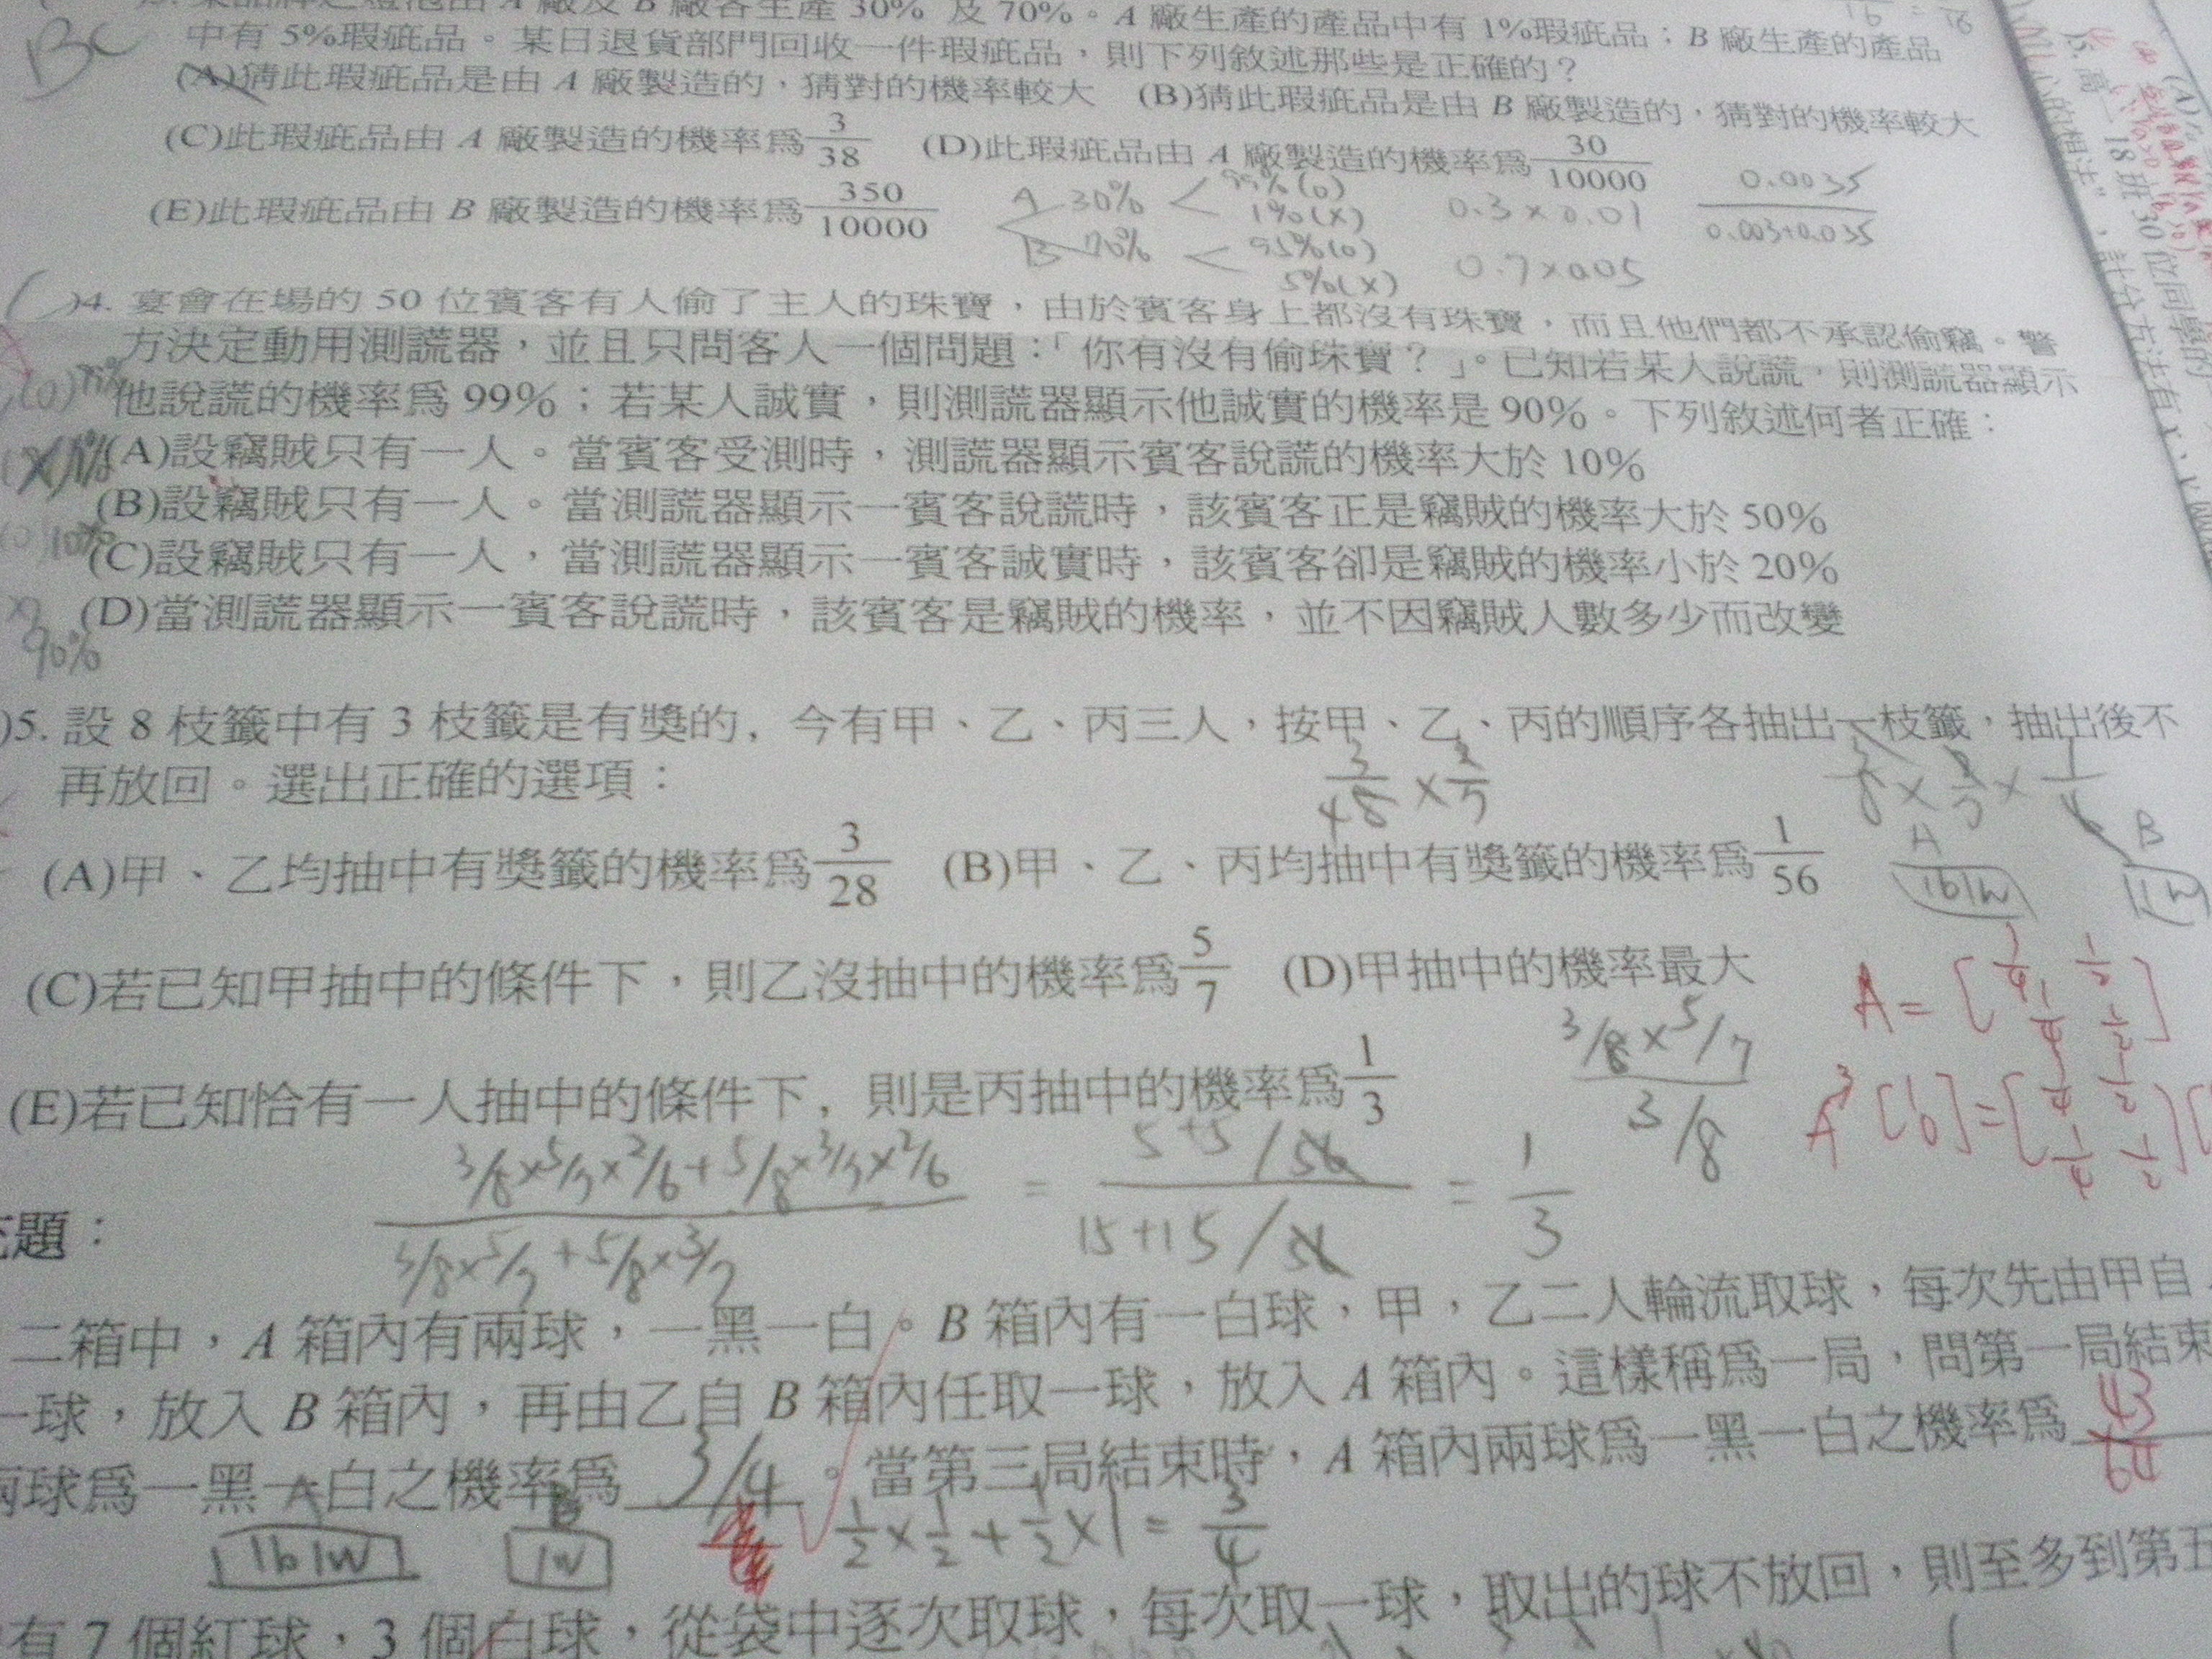 廠及 B 廠各生產 30% 及 70%。A 廠生產的產品中有 1%瑕疵品;B 廠生產的產品
BC
中有 5%瑕疵品。某日退貨部門回收一件瑕疵品,則下列敘述那些是正確的?
(A)猜此瑕疵品是由 A 廠製造的,猜對的機率較大 (B)猜此瑕疵品是由 B 廠製造的,猜對的機率較大
(C)此瑕疵品由 A 廠製造的機率為 3/38 (D)此瑕疵品由 A 廠製造的機率為 30/10000
(E)此瑕疵品由 B 廠製造的機率為 350/10000
A 30% < 99%(o) 1%(x) 0.3×0.01
B 70% < 95%(o) 5%(x) 0.7×0.05
0.0035/0.003+0.035
)4. 宴會在場的 50 位賓客有人偷了主人的珠寶,由於賓客身上都沒有珠寶,而且他們都不承認偷竊。警
方決定動用測謊器,並且只問客人一個問題:「你有沒有偷珠寶?」。已知若某人說謊,則測謊器顯示
他說謊的機率為 99%;若某人誠實,則測謊器顯示他誠實的機率是 90%。下列敘述何者正確:
(A)設竊賊只有一人。當賓客受測時,測謊器顯示賓客說謊的機率大於 10%
(B)設竊賊只有一人。當測謊器顯示一賓客說謊時,該賓客正是竊賊的機率大於 50%
(C)設竊賊只有一人,當測謊器顯示一賓客誠實時,該賓客卻是竊賊的機率小於 20%
(D)當測謊器顯示一賓客說謊時,該賓客是竊賊的機率,並不因竊賊人數多少而改變
90%
)5. 設 8 枝籤中有 3 枝籤是有獎的,今有甲、乙、丙三人,按甲、乙、丙的順序各抽出一枝籤,抽出後不
再放回。選出正確的選項:
(A)甲、乙均抽中有獎籤的機率為 3/28 (B)甲、乙、丙均抽中有獎籤的機率為 1/56
A B
1b1w
(C)若已知甲抽中的條件下,則乙沒抽中的機率為 5/7 (D)甲抽中的機率最大
3/8×5/7
3/8
(E)若已知恰有一人抽中的條件下,則是丙抽中的機率為 1/3
3/8×5/7×2/6+5/8×3/7×2/6
3/8×5/7+5/8×3/7
= 5+5/56 / 15+15/56 = 1/3
題:
二箱中,A 箱內有兩球,一黑一白。B 箱內有一白球,甲,乙二人輪流取球,每次先由甲自
一球,放入 B 箱內,再由乙自 B 箱內任取一球,放入 A 箱內。這樣稱為一局,問第一局結束
兩球為一黑一白之機率為 3/4 。當第三局結束時,A 箱內兩球為一黑一白之機率為 43/64
1b1w 1w
1/2×1/2+1/2×1=3/4
有 7 個紅球,3 個白球,從袋中逐次取球,每次取一球,取出的球不放回,則至多到第五